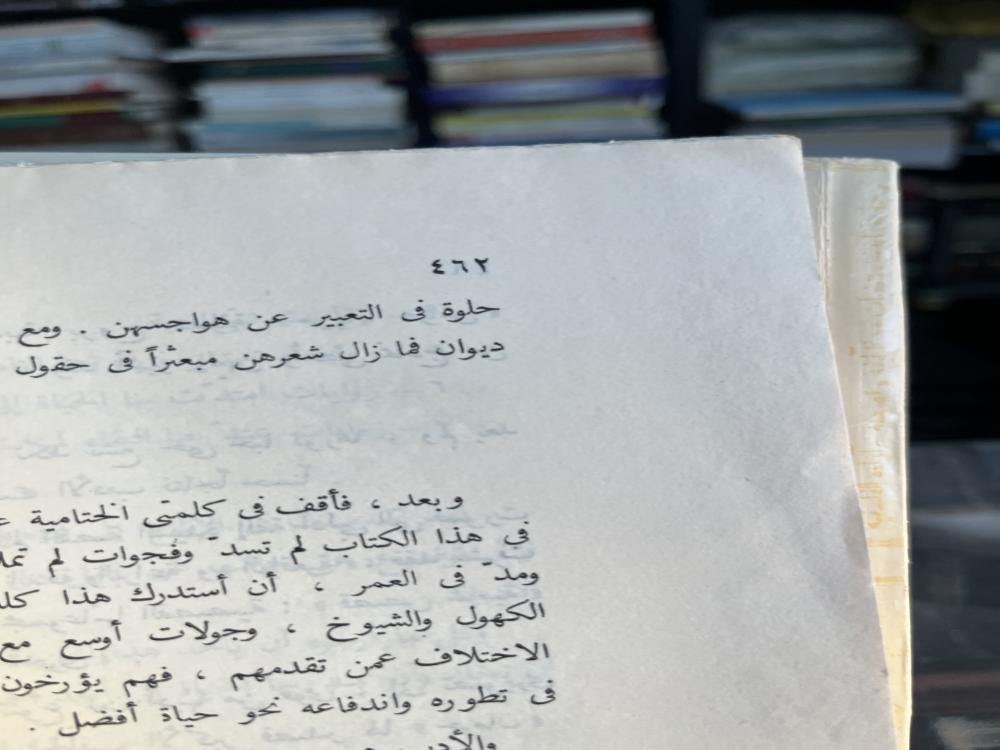 ٤٦٢
حلوة فى التعبير عن هواجسهن . ومع
ديوان فما زال شعرهن مبعثراً فى حقول
وبعد ، فأقف فى كلمتى الختامية
فى هذا الكتاب لم تسدّ وفجوات لم
ومدّ فى العمر ، أن أستدرك هذا
الكهول والشيوخ ، وجولات أوسع مع
الاختلاف عمن تقدمهم ، فهم يؤرخون
فى تطوره واندفاعه نحو حياة أفضل .